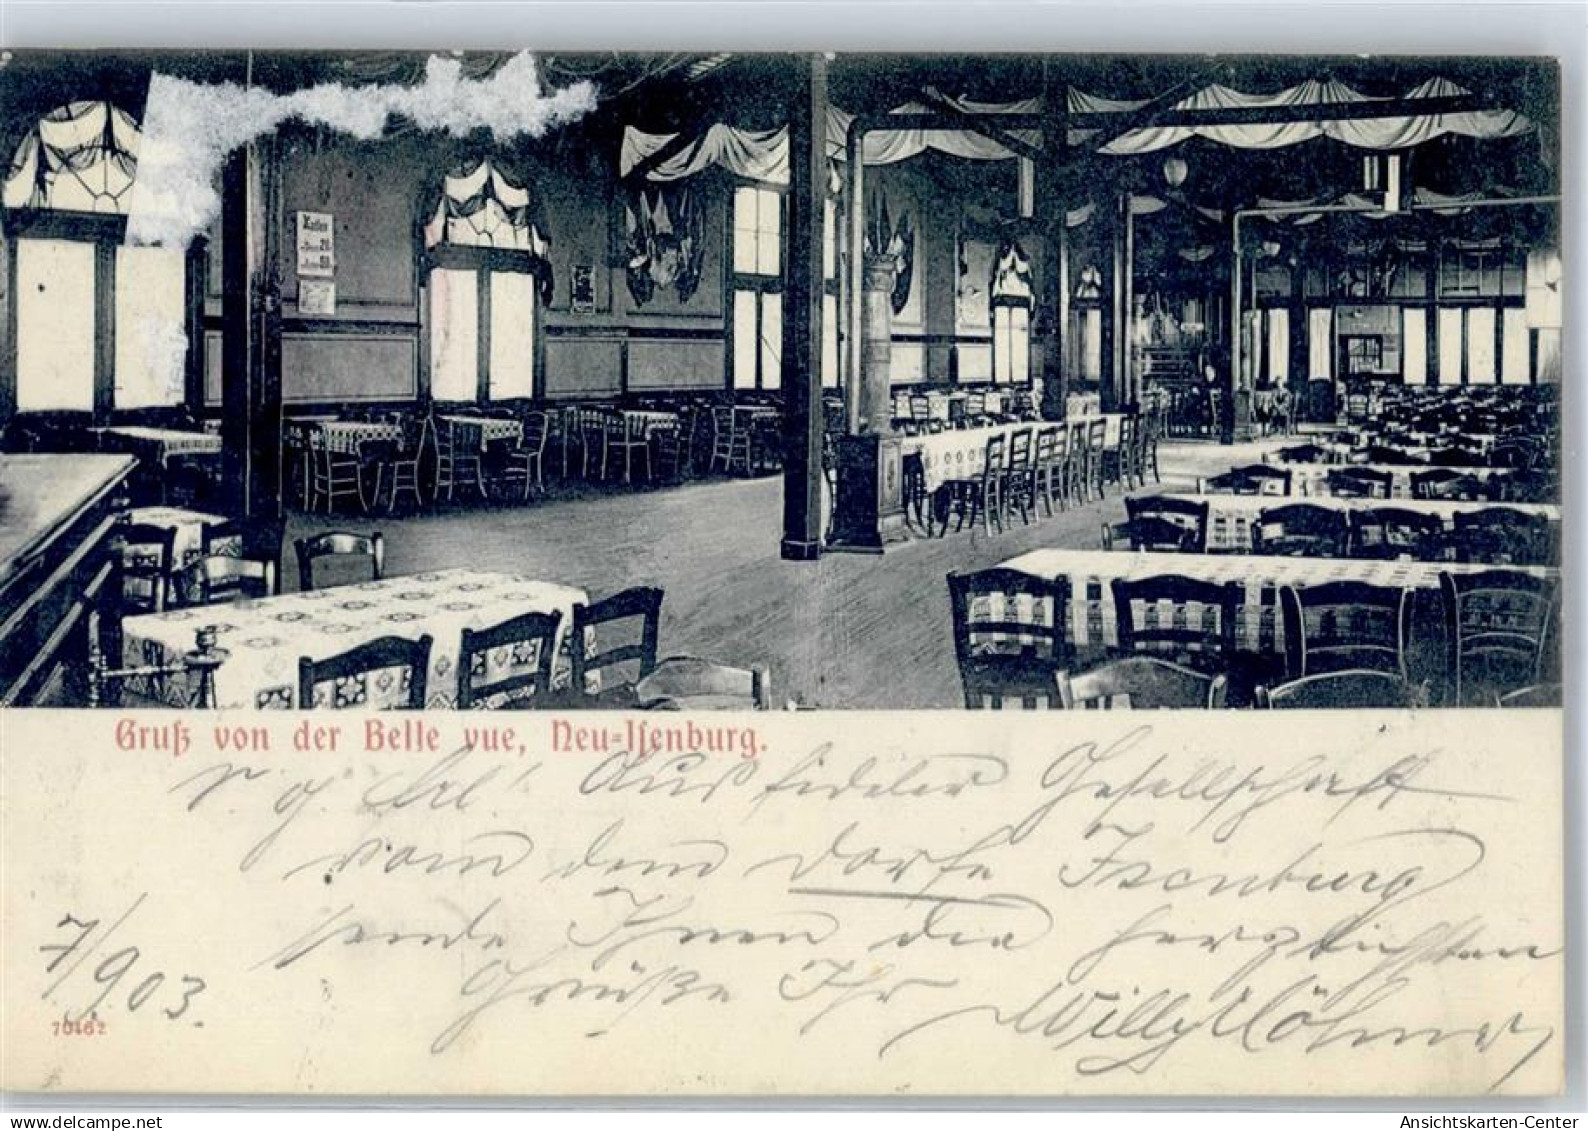 Kaffee
Gruß von der Belle vue, Neu-Isenburg.
Aus fideler Gesellschaft
vom dem Dorfe Isenburg
sende Ihnen die herzlichsten
Grüße Ihr Willy
7/9.03.
70462
Ansichtskarten-Center